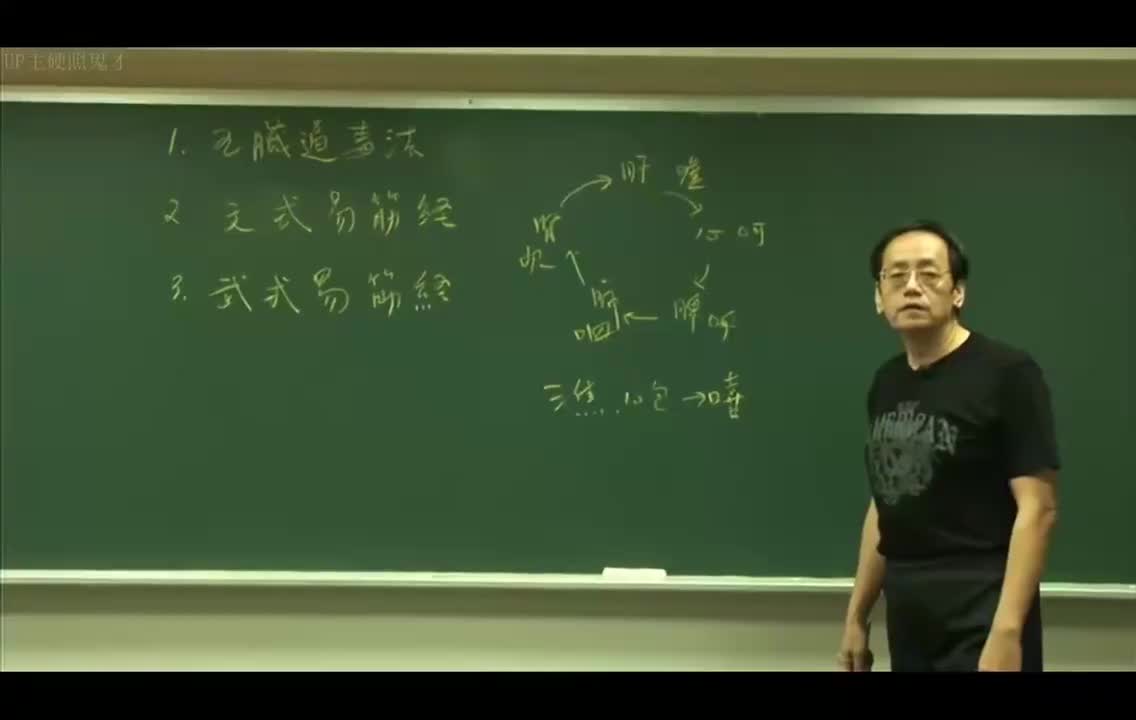 UP主硬照鬼才
1. 五臟通養法
2 文式易筋經
3. 武式易筋經
肝 噓
心 呵
脾 呼
肺 呬
腎 吹
三焦 心包 → 嘻